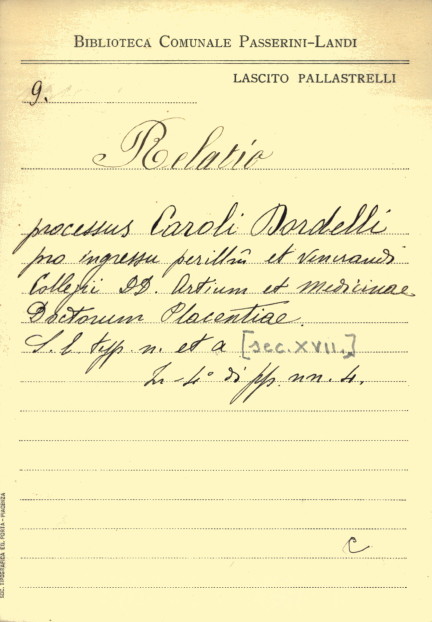 BIBLIOTECA COMUNALE PASSERINI-LANDI
LASCITO PALLASTRELLI
9.
Relatio
processus Caroli Dordelli
pro ingressu perillm̃ et Venerandi
Collegii DD. Artium et Medicinae
Doctorum Placentiae.
S. l. typ. n. et a [sec. XVII.]
In-4° di pp. nn. 4.
C
SOC. TIPOGRAFICA ED. PORTA-PIACENZA